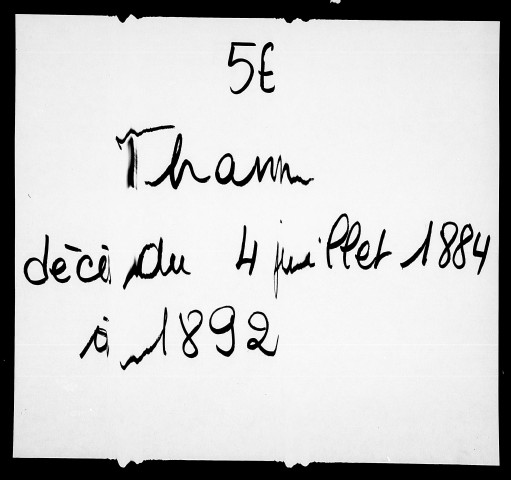 5E
Thann
décè du 4 juillet 1884
à 1892